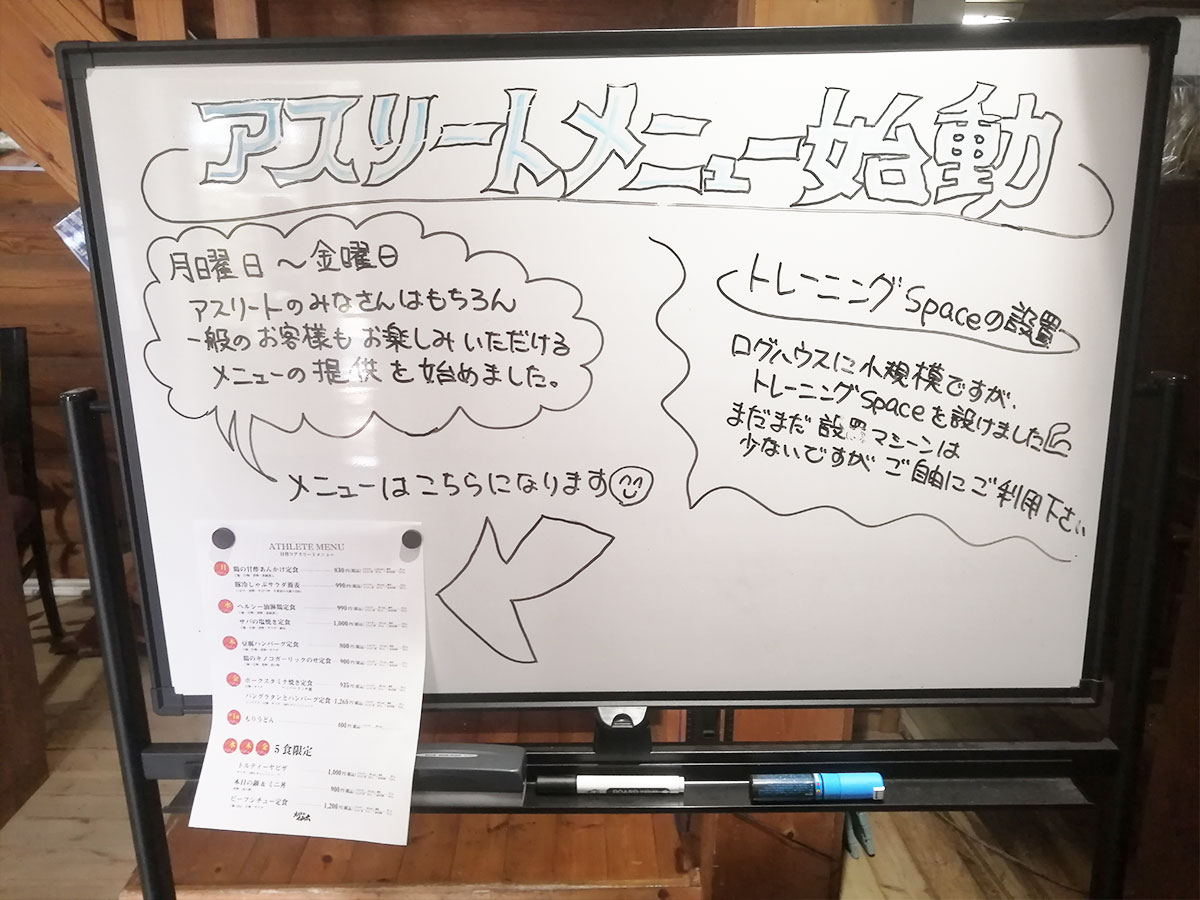 アスリートメニュー始動
月曜日〜金曜日
アスリートのみなさんはもちろん
一般のお客様もお楽しみいただける
メニューの提供を始めました。
メニューはこちらになります
トレーニングSpaceの設置
ログハウスに小規模ですが、
トレーニングSpaceを設けました
まだまだ設置マシーンは
少ないですがご自由にご利用下さい
ATHLETE MENU
日替りアスリートメニュー
月 鶏の甘酢あんかけ定食 830円(税込)
豚冷しゃぶサラダ蕎麦 990円(税込)
水 ヘルシー油淋鶏定食 990円(税込)
サバの塩焼き定食 1,000円(税込)
木 豆腐ハンバーグ定食 800円(税込)
鶏のキノコガーリックのせ定食 900円(税込)
金 ポークスタミナ焼き定食 935円(税込)
パングラタンとハンバーグ定食 1,260円(税込)
もりうどん 600円(税込)
水 木 金 5食限定
トルティーヤピザ 1,000円(税込)
本日の鍋&ミニ丼 900円(税込)
ビーフシチュー定食 1,200円(税込)